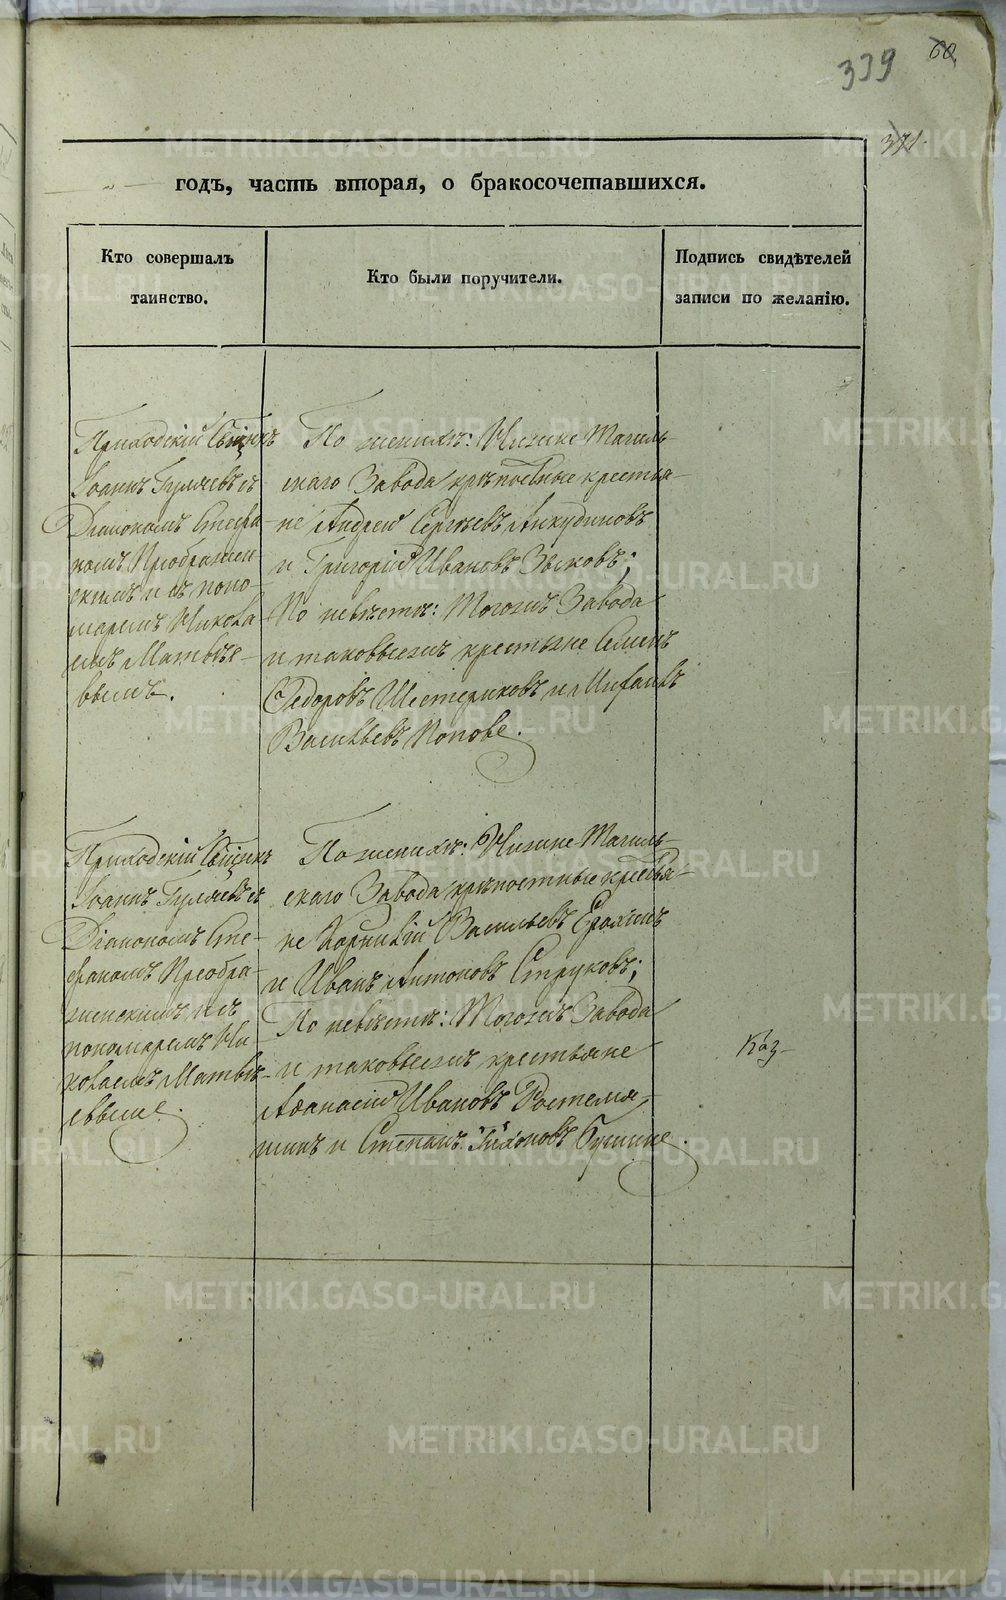 339 60.
371.
годъ, часть вторая, о бракосочетавшихся.
Кто совершалъ
таинство.
Кто были поручители.
Подпись свидѣтелей
записи по желанію.
Приходскій Свщнкъ
Іоаннъ Гуляевъ съ
Діакономъ Стефа-
номъ Преображен
скимъ и съ поно-
маремъ Никола
емъ Матвѣе-
вымъ.
По женихѣ: Нижне Тагиль
скаго Завода крѣпостные крестья-
не Андрей Сергѣевъ Анкудиновъ
и Григорій Ивановъ Зыковъ;
По невѣстѣ: Тогожъ Завода
и таковыежъ крестьяне Семенъ
Ѳедоровъ Шестериковъ и
Васильевъ Поповъ.
Приходскій Свщнкъ
Іоаннъ Гуляевъ съ
Діакономъ Сте-
фаномъ Преобра-
женскимъ и съ
пономаремъ Ни-
колаемъ Матвѣ-
евымъ.
По женихѣ: Нижне Тагиль-
скаго Завода крѣпостные крестья-
не Корнилій Васильевъ
и Иванъ Антоновъ Струковъ;
По невѣстѣ: Тогожъ Завода
и таковыежъ крестьяне
Аѳанасій Ивановъ
и Степанъ Тихоновъ
METRIKI.GASO-URAL.RU